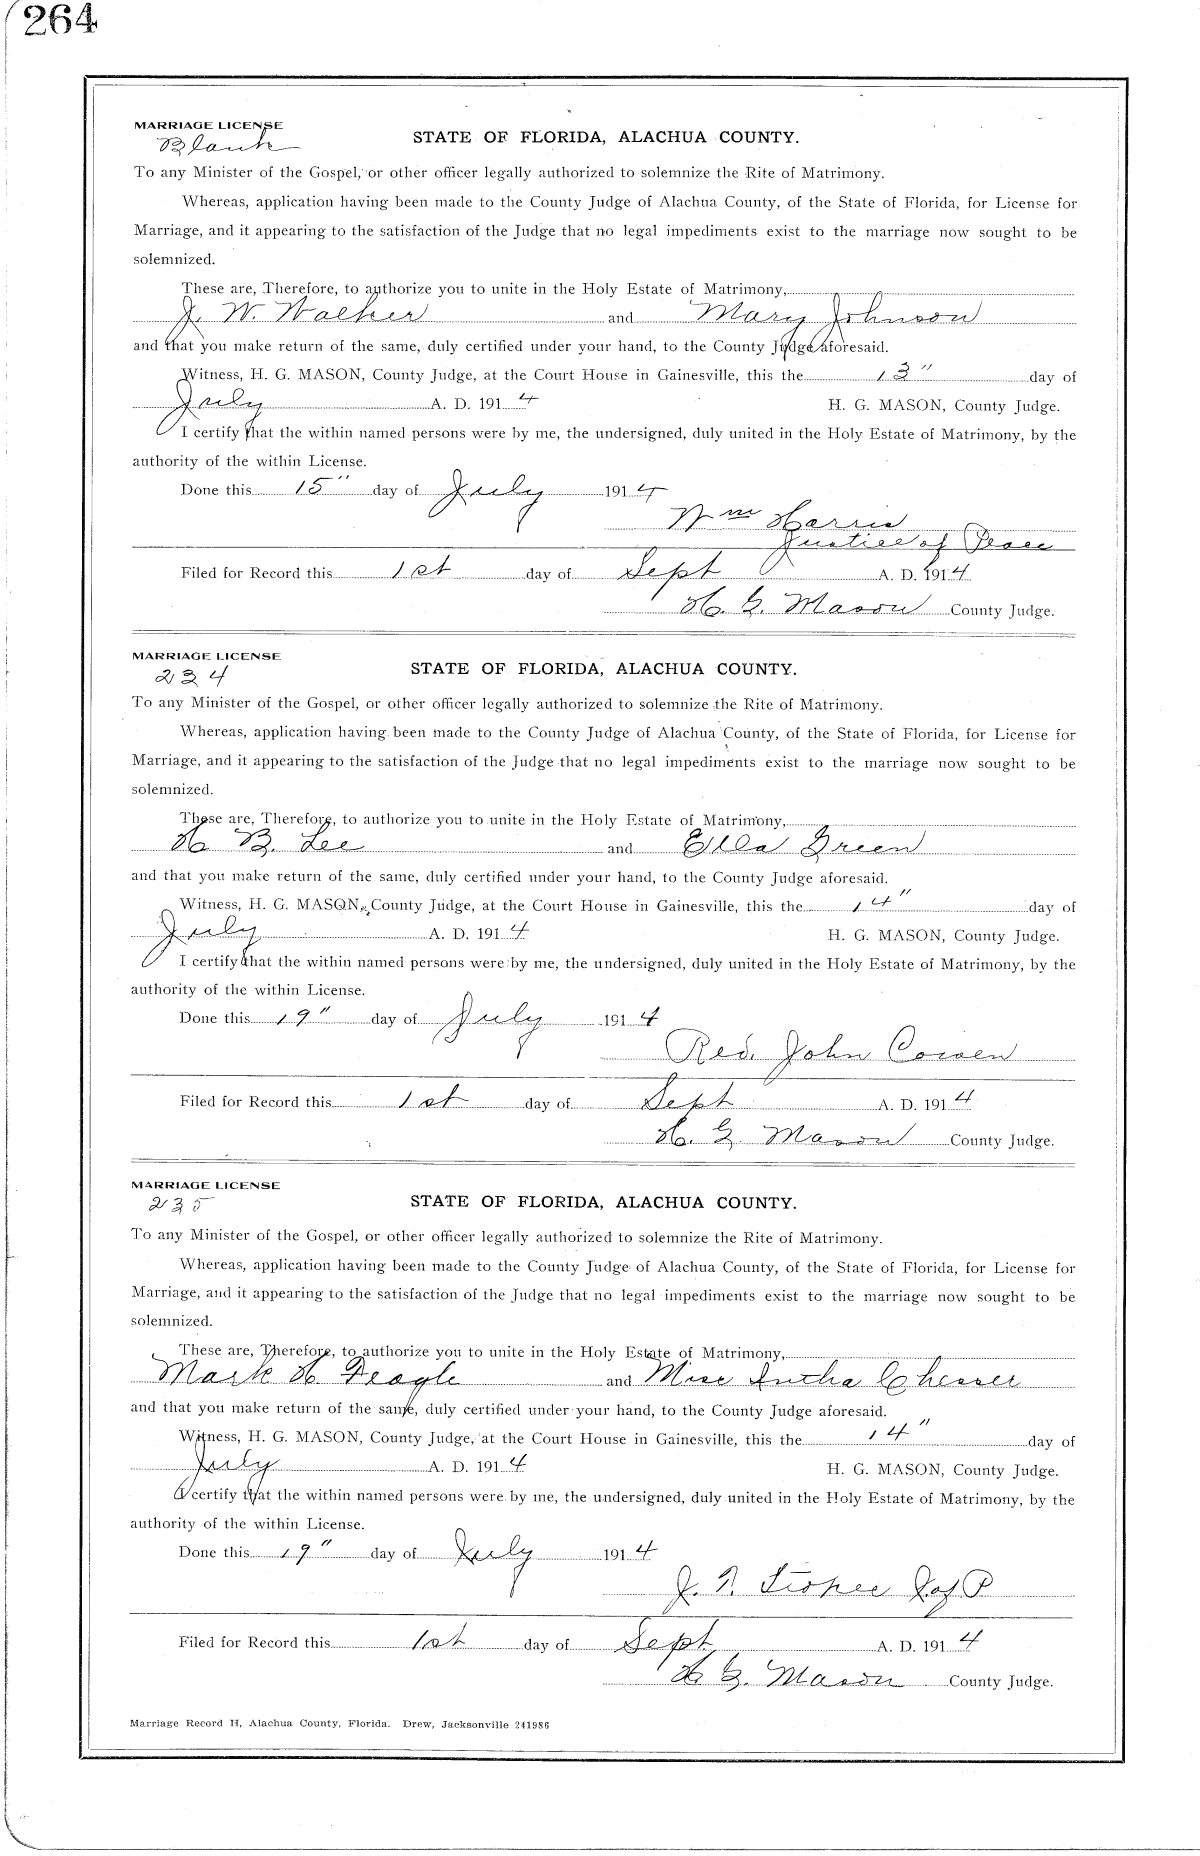 264
MARRIAGE LICENSE
Blank
STATE OF FLORIDA, ALACHUA COUNTY.
To any Minister of the Gospel, or other officer legally authorized to solemnize the Rite of Matrimony.
Whereas, application having been made to the County Judge of Alachua County, of the State of Florida, for License for
Marriage, and it appearing to the satisfaction of the Judge that no legal impediments exist to the marriage now sought to be
solemnized.
These are, Therefore, to authorize you to unite in the Holy Estate of Matrimony,
J. W. Walker and Mary Johnson
and that you make return of the same, duly certified under your hand, to the County Judge aforesaid.
Witness, H. G. MASON, County Judge, at the Court House in Gainesville, this the 13" day of
July A. D. 1914 H. G. MASON, County Judge.
I certify that the within named persons were by me, the undersigned, duly united in the Holy Estate of Matrimony, by the
authority of the within License.
Done this 15" day of July 1914
Wm Harris
Justice of Peace
Filed for Record this 1st day of Sept A. D. 1914
H. G. Mason County Judge.
MARRIAGE LICENSE
234
STATE OF FLORIDA, ALACHUA COUNTY.
To any Minister of the Gospel, or other officer legally authorized to solemnize the Rite of Matrimony.
Whereas, application having been made to the County Judge of Alachua County, of the State of Florida, for License for
Marriage, and it appearing to the satisfaction of the Judge that no legal impediments exist to the marriage now sought to be
solemnized.
These are, Therefore, to authorize you to unite in the Holy Estate of Matrimony,
H B. Lee and Ella Green
and that you make return of the same, duly certified under your hand, to the County Judge aforesaid.
Witness, H. G. MASON, County Judge, at the Court House in Gainesville, this the 14" day of
July A. D. 1914 H. G. MASON, County Judge.
I certify that the within named persons were by me, the undersigned, duly united in the Holy Estate of Matrimony, by the
authority of the within License.
Done this 19" day of July 1914
Rev. John Cowen
Filed for Record this 1st day of Sept A. D. 1914
H. G Mason County Judge.
MARRIAGE LICENSE
235
STATE OF FLORIDA, ALACHUA COUNTY.
To any Minister of the Gospel, or other officer legally authorized to solemnize the Rite of Matrimony.
Whereas, application having been made to the County Judge of Alachua County, of the State of Florida, for License for
Marriage, and it appearing to the satisfaction of the Judge that no legal impediments exist to the marriage now sought to be
solemnized.
These are, Therefore, to authorize you to unite in the Holy Estate of Matrimony,
Mark H. Feagle and Miss Intha Chesser
and that you make return of the same, duly certified under your hand, to the County Judge aforesaid.
Witness, H. G. MASON, County Judge, at the Court House in Gainesville, this the 14" day of
July A. D. 1914 H. G. MASON, County Judge.
I certify that the within named persons were by me, the undersigned, duly united in the Holy Estate of Matrimony, by the
authority of the within License.
Done this 19" day of July 1914
J. J. of P
Filed for Record this 1st day of Sept. A. D. 1914
H. G. Mason County Judge.
Marriage Record H, Alachua County, Florida. Drew, Jacksonville 241986